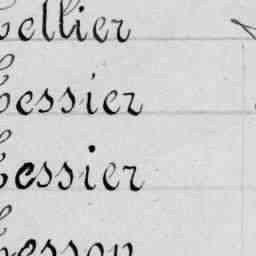 Tellier
Tessier
Tessier
Tesson